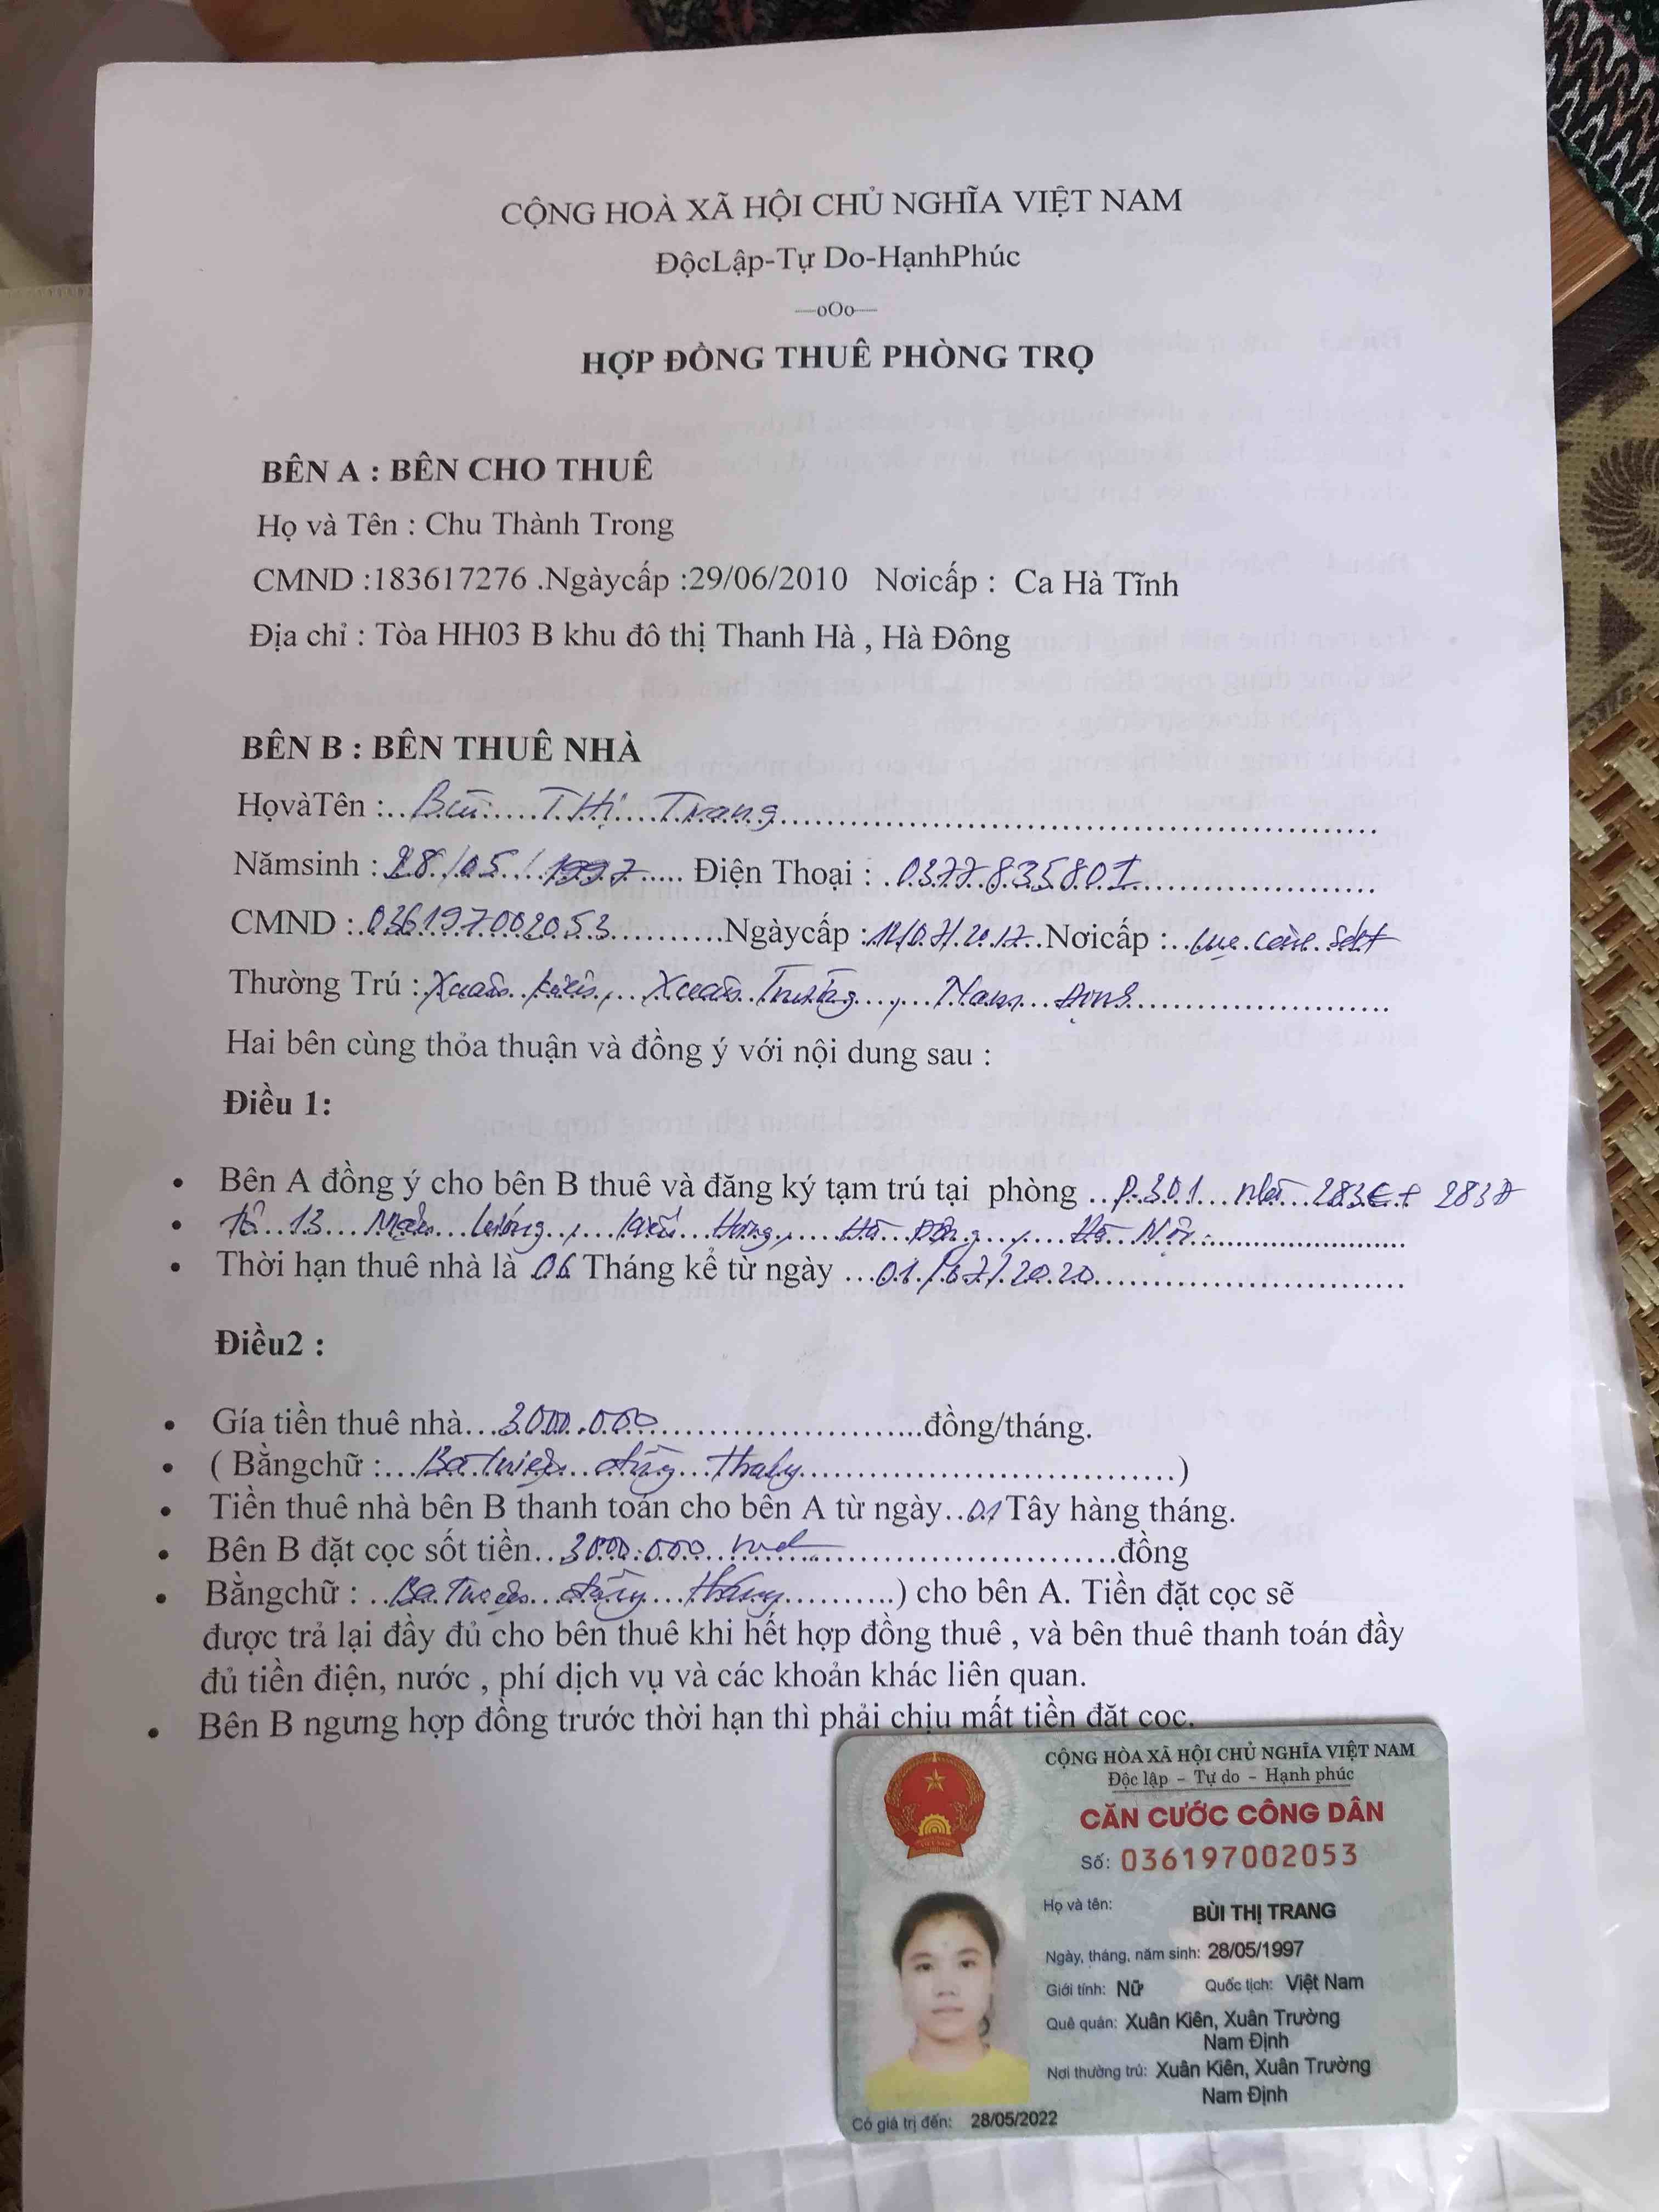 CỘNG HOÀ XÃ HỘI CHỦ NGHĨA VIỆT NAM
ĐộcLập-Tự Do-HạnhPhúc
—oOo—
HỢP ĐỒNG THUÊ PHÒNG TRỌ
BÊN A : BÊN CHO THUÊ
Họ và Tên : Chu Thành Trong
CMND :183617276 .Ngàycấp :29/06/2010 Nơicấp : Ca Hà Tĩnh
Địa chỉ : Tòa HH03 B khu đô thị Thanh Hà , Hà Đông
BÊN B : BÊN THUÊ NHÀ
HọvàTên :..Bùi....THị...Trang
Nămsinh :28/05/1997..... Điện Thoại : .0377835801
CMND :.036197002053..........Ngàycấp :11/07/2017..Nơicấp :
Thường Trú :Xuân Kiên, Xuân Trường, Nam Định
Hai bên cùng thỏa thuận và đồng ý với nội dung sau :
Điều 1:
• Bên A đồng ý cho bên B thuê và đăng ký tạm trú tại phòng ..P.301...nhà...283
• Tổ 13 Mậu Lương, Kiến Hưng, Hà Đông, Hà Nội
• Thời hạn thuê nhà là 06 Tháng kể từ ngày ...01/07/2020
Điều2 :
• Gía tiền thuê nhà...3000.000..........đồng/tháng.
• ( Bằngchữ :...Ba triệu đồng tháng..........)
• Tiền thuê nhà bên B thanh toán cho bên A từ ngày..01 Tây hàng tháng.
• Bên B đặt cọc sốt tiền...3000.000 vnd..........đồng
• Bằngchữ : ..Ba triệu đồng tháng..........) cho bên A. Tiền đặt cọc sẽ
được trả lại đầy đủ cho bên thuê khi hết hợp đồng thuê , và bên thuê thanh toán đầy
đủ tiền điện, nước , phí dịch vụ và các khoản khác liên quan.
• Bên B ngưng hợp đồng trước thời hạn thì phải chịu mất tiền đặt cọc.
CỘNG HÒA XÃ HỘI CHỦ NGHĨA VIỆT NAM
Độc lập - Tự do - Hạnh phúc
CĂN CƯỚC CÔNG DÂN
Số: 036197002053
Họ và tên: BÙI THỊ TRANG
Ngày, tháng, năm sinh: 28/05/1997
Giới tính: Nữ Quốc tịch: Việt Nam
Quê quán: Xuân Kiên, Xuân Trường
Nam Định
Nơi thường trú: Xuân Kiên, Xuân Trường
Nam Định
Có giá trị đến: 28/05/2022